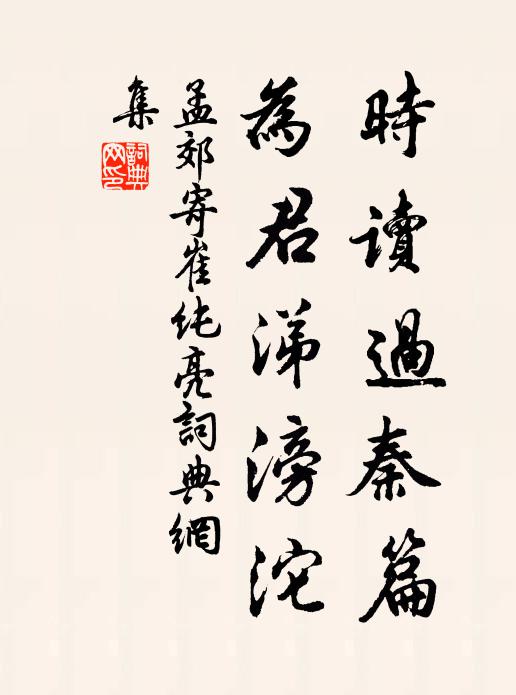 時讀過秦篇
為君涕滂沱
孟郊寄崔純亮詞典網
集
詞典
网印